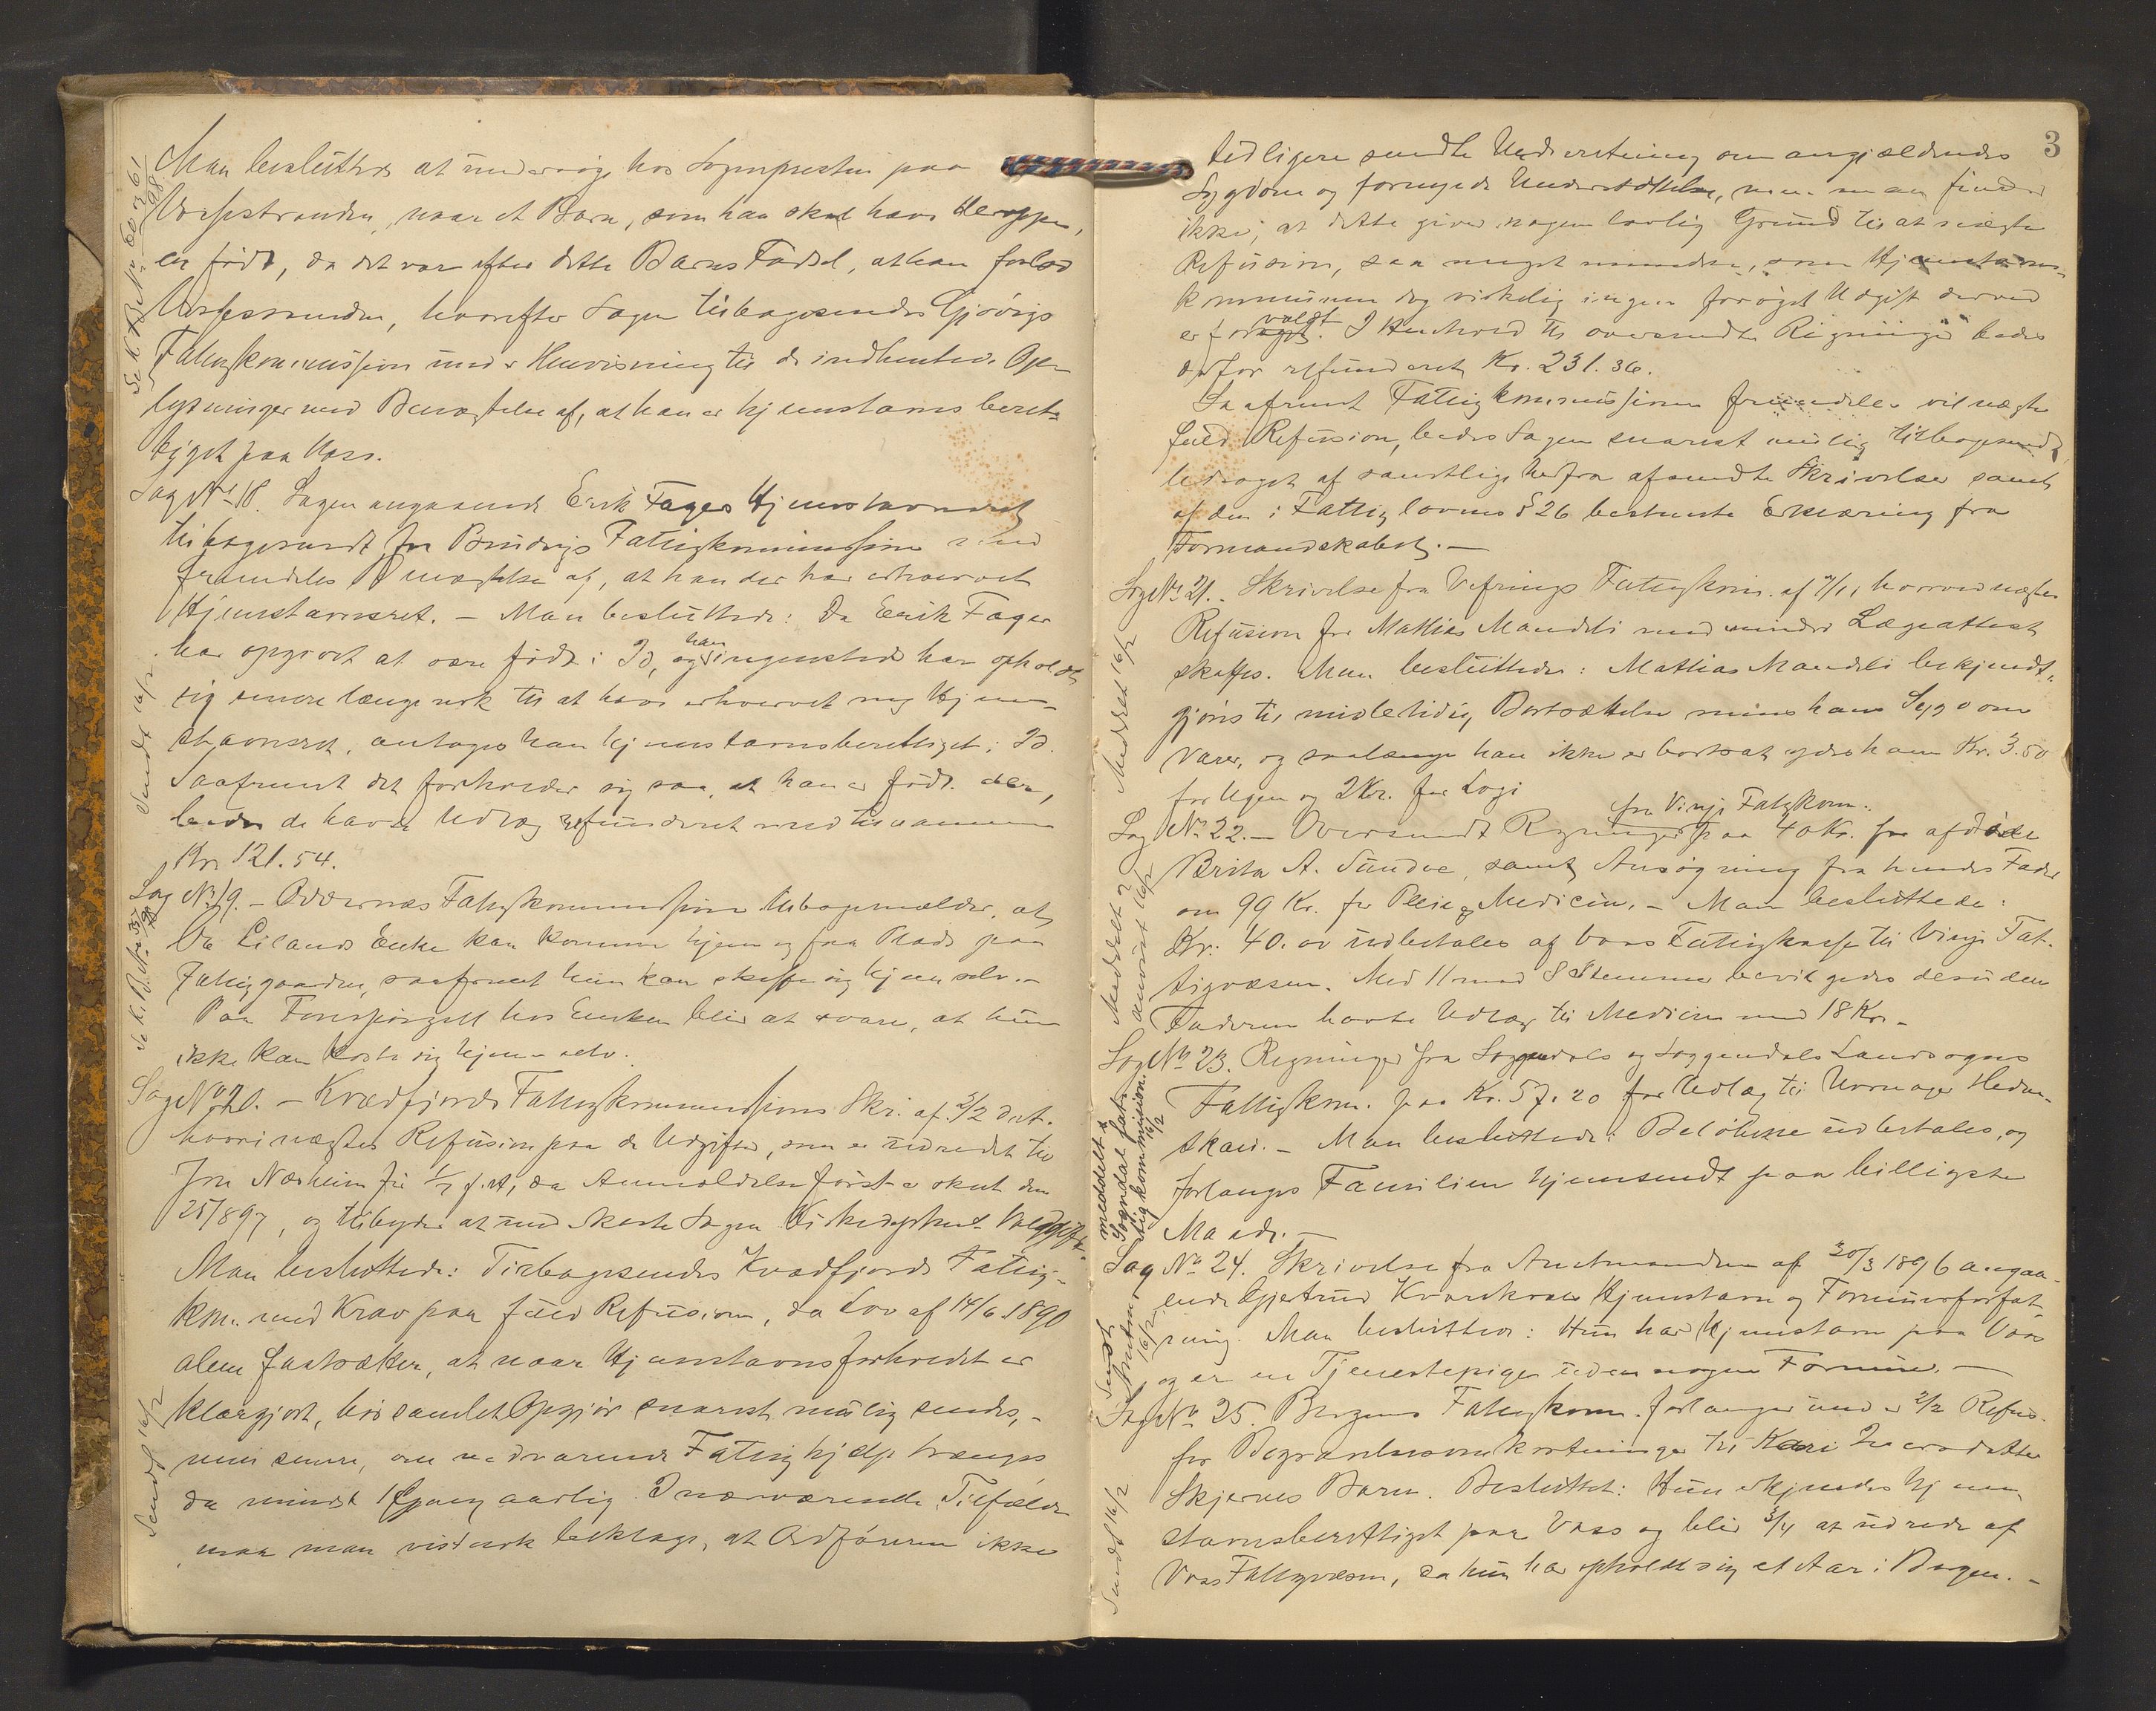 Man besluttede at undersøge hos Sognepresten paa
Vorfestranden, naar et Barn, som han skal have deroppe,
er født, da det var efter dette Barns Fødsel, at han forlod
hvorefter Sagen tilbagesendes Gjøvigs
Fatigkommission under Henvisning til de indhentede Op-
lysninger med Benægtelse af, at han er hjemstavnsberet-
tiget paa Voss.
Sag No 18. Sagen angaaende Erik Fages Hjemstavnsret
tilbagesendt fra Fatigkommission med
fremdeles Benægtelse af, at han der har erhvervet
Hjemstavnsret. - Man besluttede: Da Erik Fager
har opgivet at være født i Id, og han ingensteds har opholdt
sig senere længe nok til at have erhvervet ny Hjem-
stavnsret, antages han hjemstavnsberettiget i Id.
Saafremt det forholder sig saa, at han er født der,
bedes de havte Udlæg refunderet med tilsammen
Kr. 121.54.
Sag No 19. - Oddernes Fatigkommission tilbagemelder, at
Lilands Enke kan komme hjem og faa Plads paa
Fatiggaarden, saafremt hun kan skaffe sig hjem selv. -
Paa Forespørgsel hos Enken blev at svare, at hun
ikke kan koste sig hjem selv.
Sag No 20. - Kvædfjords Fatigkommissions Skr. af 3/2 d.A.
hvori nægtes Refusion paa de Udgifter, som er udredet til
Jon Næsheim fra 1/7 f.A., da Anmeldelse først er skeet den
25/8 97, og tilbyder at
Man besluttede: Tilbagesendes Kvædfjords Fatig-
kom. med Krav paa fuld Refusion, da Lov af 14/6 1890
alene fastsætter, at naar Hjemstavnsforholdet er
klargjort, bør samlet Opgjør snarest mulig sendes, -
men senere, om vedvarende Fatighjælp trænges,
da mindst 1 Gang aarlig. I nærværende Tilfælde
maa man vistnok beklage, at Ordføreren ikke
Sendt 16/2
Sendt 16/2
3
tidligere sendte Underretning om angjældendes
Sygdom og fornyede Understøttelse, men man finder
ikke, at dette giver nogen lovlig Grund til at nægte
Refusion, saa meget mindre, som Hjemstavns-
kommunen dog virkelig ingen forøget Udgift derved
er forvoldt. I Henhold til oversendte Regninger bedes
derfor refunderet Kr. 231.36.
Saafremt Fatigkommissionen fremdeles vil nægte
fuld Refusion, bedes Sagen snarest mulig tilbagesendt
ledsaget af samtlige herfra afsendte Skrivelser samt
af den i Fattiglovens § 26 bestemte Erklæring fra
Formandskabet. -
Sag No 21. Skrivelse fra Vefsens Fatigkom. af 7/1, hvorved nægtes
Refusion for Mathias Mandeli med mindre Lægeattest
skaffes. Man besluttede: Mathias Mandeli bekjendt-
gjøres til midlertidig Bortsættelse mens hans Sygdom
varer, og saalænge han ikke er bortsat ydes ham Kr. 3.50
for Ugen og 2 Kr. for Logi
Sag No 22. - Oversendt Regninger fra Vinje Fatigkom. paa 40 Kr. for afdøde
Brita A. Sundve, samt Ansøgning fra hendes Fader
om 99 Kr. for Pleie og Medicin. - Man besluttede:
Kr. 40.00 udbetales af Voss Fatigkasse til Vinje Fat-
tigvæsen. Med 11 mod 8 Stemmer bevilgedes desuden
Faderen havte Udlæg til Medicin med 18 Kr. -
Sag No 23. Regninger fra Soggendals og Soggendals Landsogns
Fattigkom. paa Kr. 57.20 for Udlæg til
Man besluttede: Beløbene udbetales, og
forlanges Familien hjemsendt paa billigste
Maade. -
Sag No 24. Skrivelse fra Amtmanden af 30/3 1896 angaa-
ende Gjertrud Hjemstavn og Formuesforfat-
ning. Man besluttede: Hun har Hjemstavn paa Voss
og er en Tjenestepige uden nogen Formue. -
Sag No 25. Bergens Fatigkom. forlanger under 2/2 Refus.
for Begravelsesomkostninger til Kari
Skjerves Barn. Besluttet: Hun erkjendes hjem-
stavnsberettiget paa Voss og blir 3/4 at udrede af
Voss Fattigvæsen, da hun har opholdt sig et Aar i Bergen. -
Meddelt 16/2
Meddelt og
anvist 16/2
meddelt
Sogndal fat-
tigkommision.
16/2
Sendt
Amtm.
16/2
Sendt 16/2